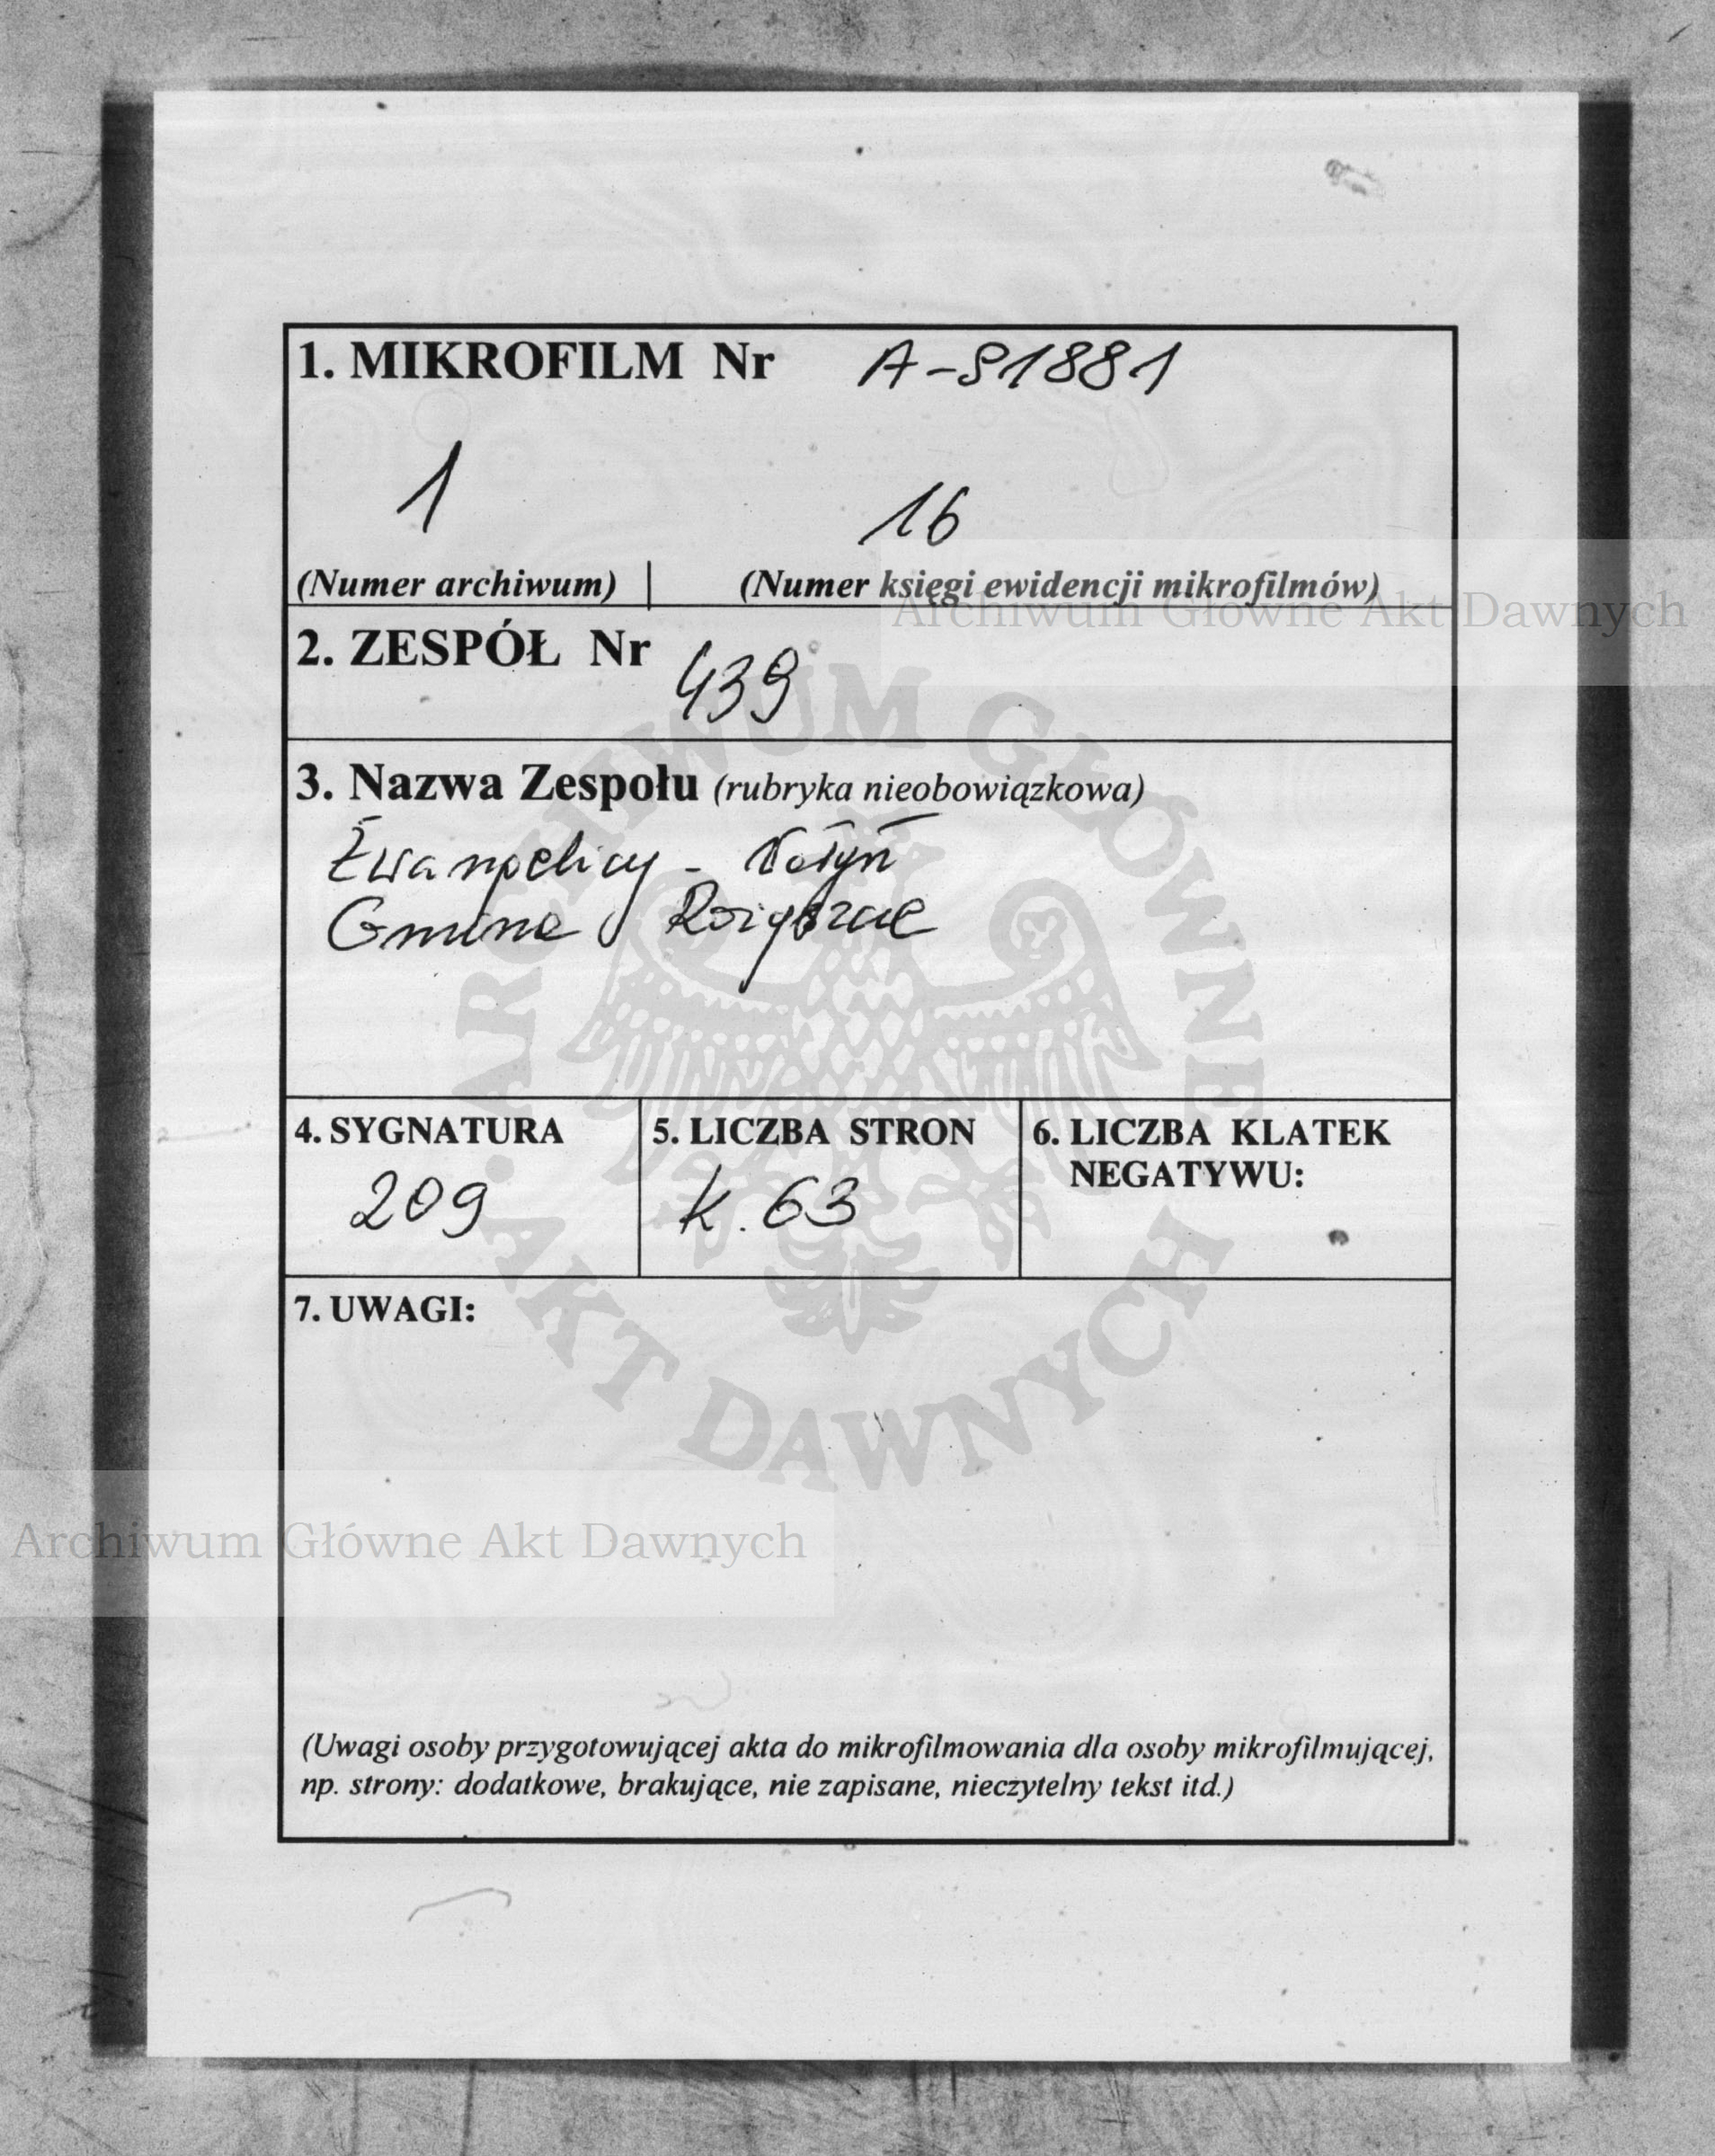 1. MIKROFILM Nr A-91881
1 16
(Numer archiwum) | (Numer księgi ewidencji mikrofilmów)
Archiwum Główne Akt Dawnych
2. ZESPÓŁ Nr 439
3. Nazwa Zespołu (rubryka nieobowiązkowa)
Ewangelicy - Wołyń
Gmina Rożyszcze
4. SYGNATURA
209
5. LICZBA STRON
k. 63
6. LICZBA KLATEK
NEGATYWU:
ARCHIWUM GŁÓWNE
AKT DAWNYCH
7. UWAGI:
Archiwum Główne Akt Dawnych
(Uwagi osoby przygotowującej akta do mikrofilmowania dla osoby mikrofilmującej,
np. strony: dodatkowe, brakujące, nie zapisane, nieczytelny tekst itd.)